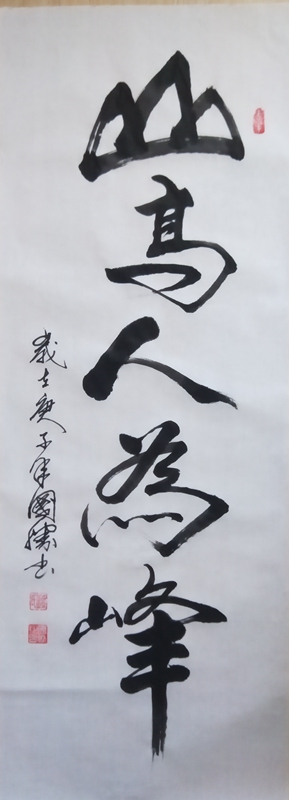 山高人為峰
歲在庚子年國勝书